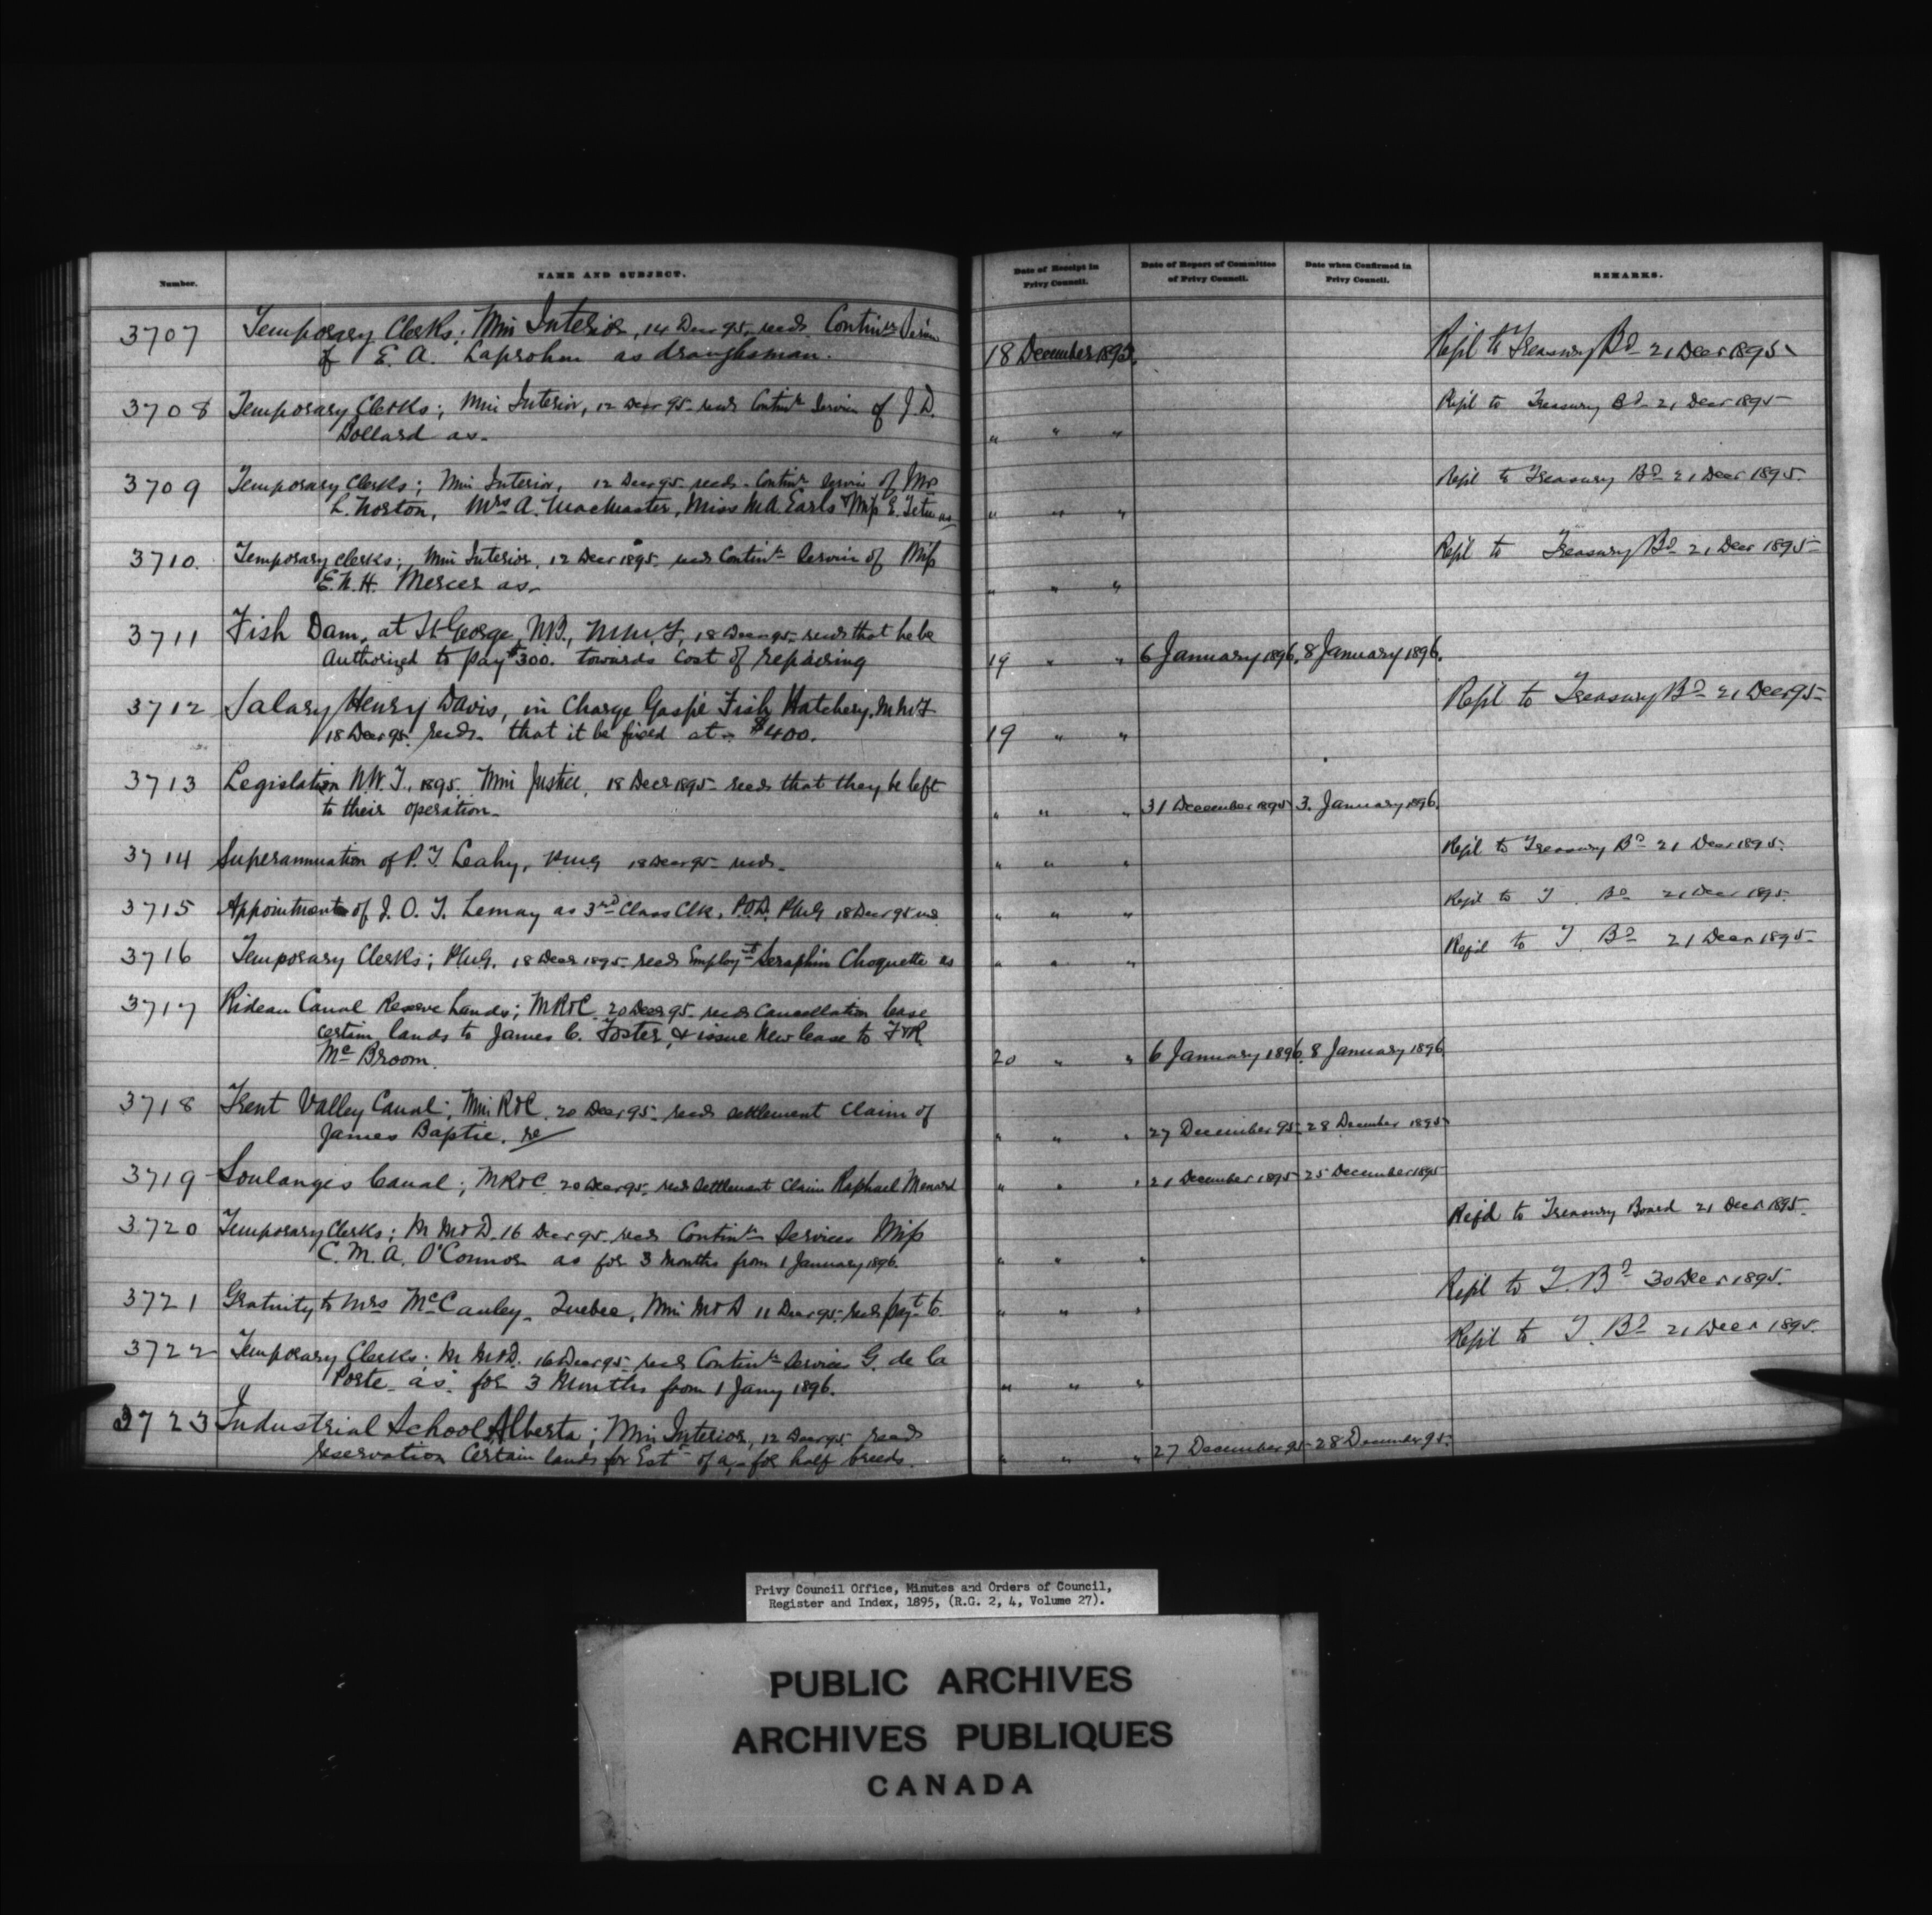 Number.
NAME AND SUBJECT.
Date of Receipt in Privy Council.
Date of Report of Committee of Privy Council.
Date when Confirmed in Privy Council.
REMARKS.
3707 Temporary Clerks; Min Interior, 14 Decr 95, recds Contince Service
of E. A. Laprohon as draughsman.
18 December 1895.
Refd to Treasury Bd 21 Decr 1895
3708 Temporary Clerks; Min Interior, 12 Decr 95 recds Contince Service of J. D.
Dollard as.
" " "
Refd to Treasury Bd 21 Decr 1895
3709 Temporary Clerks; Min Interior, 12 Decr 95 recds Contince Service of Mrs
L. Norton, Mrs A. MacMaster, Miss M A Earls & Miss E. Tetu as
" " "
Refd to Treasury Bd 21 Decr 1895.
3710. Temporary Clerks; Min Interior, 12 Decr 1895. recds Contince Service of Miss
E. N. H. Mercer as.
" " "
Refd to Treasury Bd 21 Decr 1895
3711 Fish Dam, at St George, N.B., M M & F, 18 Decr 95 recds that he be
authorized to pay $300. towards cost of repairing
19 " " 6 January 1896. 8 January 1896.
3712 Salary Henry Davis, in Charge Gaspé Fish Hatchery, M M & F
18 Decr 95. recds. that it be fixed at $400.
19 " "
Refd to Treasury Bd 21 Decr 95
3713 Legislation N.W.T., 1895. Min Justice, 18 Decr 1895 recds that they be left
to their operation.
" " " 31 December 1895 3. January 1896.
3714 Superannuation of P. T. Leahy, P.M.G 18 Decr 95 recds.
" " "
Refd to Treasury Bd 21 Decr 1895.
3715 Appointment of J. O. T. Lemay as 3rd Class Clk, P.O.D. P.M.G 18 Decr 95 recds
" " "
Refd to T. Bd 21 Decr 1895.
3716 Temporary Clerks; P.M.G. 18 Decr 1895. recds Employt Seraphin Choquette as
" " "
Refd to T. Bd 21 Decr 1895
3717 Rideau Canal Reserve Lands; M R & C. 20 Decr 95. recds Cancellation lease
certain lands to James C. Foster, & issue New lease to F & R.
McBroom.
20 " " 6 January 1896. 8 January 1896
3718 Trent Valley Canal; Min R & C. 20 Decr 95. recds settlement claim of
James Baptie. re
" " " 27 December 95. 28 December 1895
3719 Soulanges Canal; M R & C. 20 Decr 95. recds settlement Claim Raphael Menard
" " " 21 December 1895 25 December 1895
3720 Temporary Clerks; M M & D. 16 Decr 95 recds Contince Services Miss
C. M. A. O'Connor as for 3 Months from 1 January 1896.
" " "
Refd to Treasury Board 21 Decr 1895.
3721 Gratuity to Mrs McCauley, Quebec, Min M & D 11 Decr 95. recds payt to.
" " "
Refd to T. Bd 30 Decr 1895.
3722 Temporary Clerks; M M & D. 16 Decr 95 recds Contince Services G. de la
Porte as. for 3 Months from 1 Jany 1896.
" " "
Refd to T. Bd 21 Decr 1895.
3723 Industrial School, Alberta; Min Interior, 12 Decr 95. recds
reservation Certain lands for Estt of a, for half breeds.
" " " 27 December 95 28 December 95.
Privy Council Office, Minutes and Orders of Council,
Register and Index, 1895, (R.G. 2, 4, Volume 27).
PUBLIC ARCHIVES
ARCHIVES PUBLIQUES
CANADA